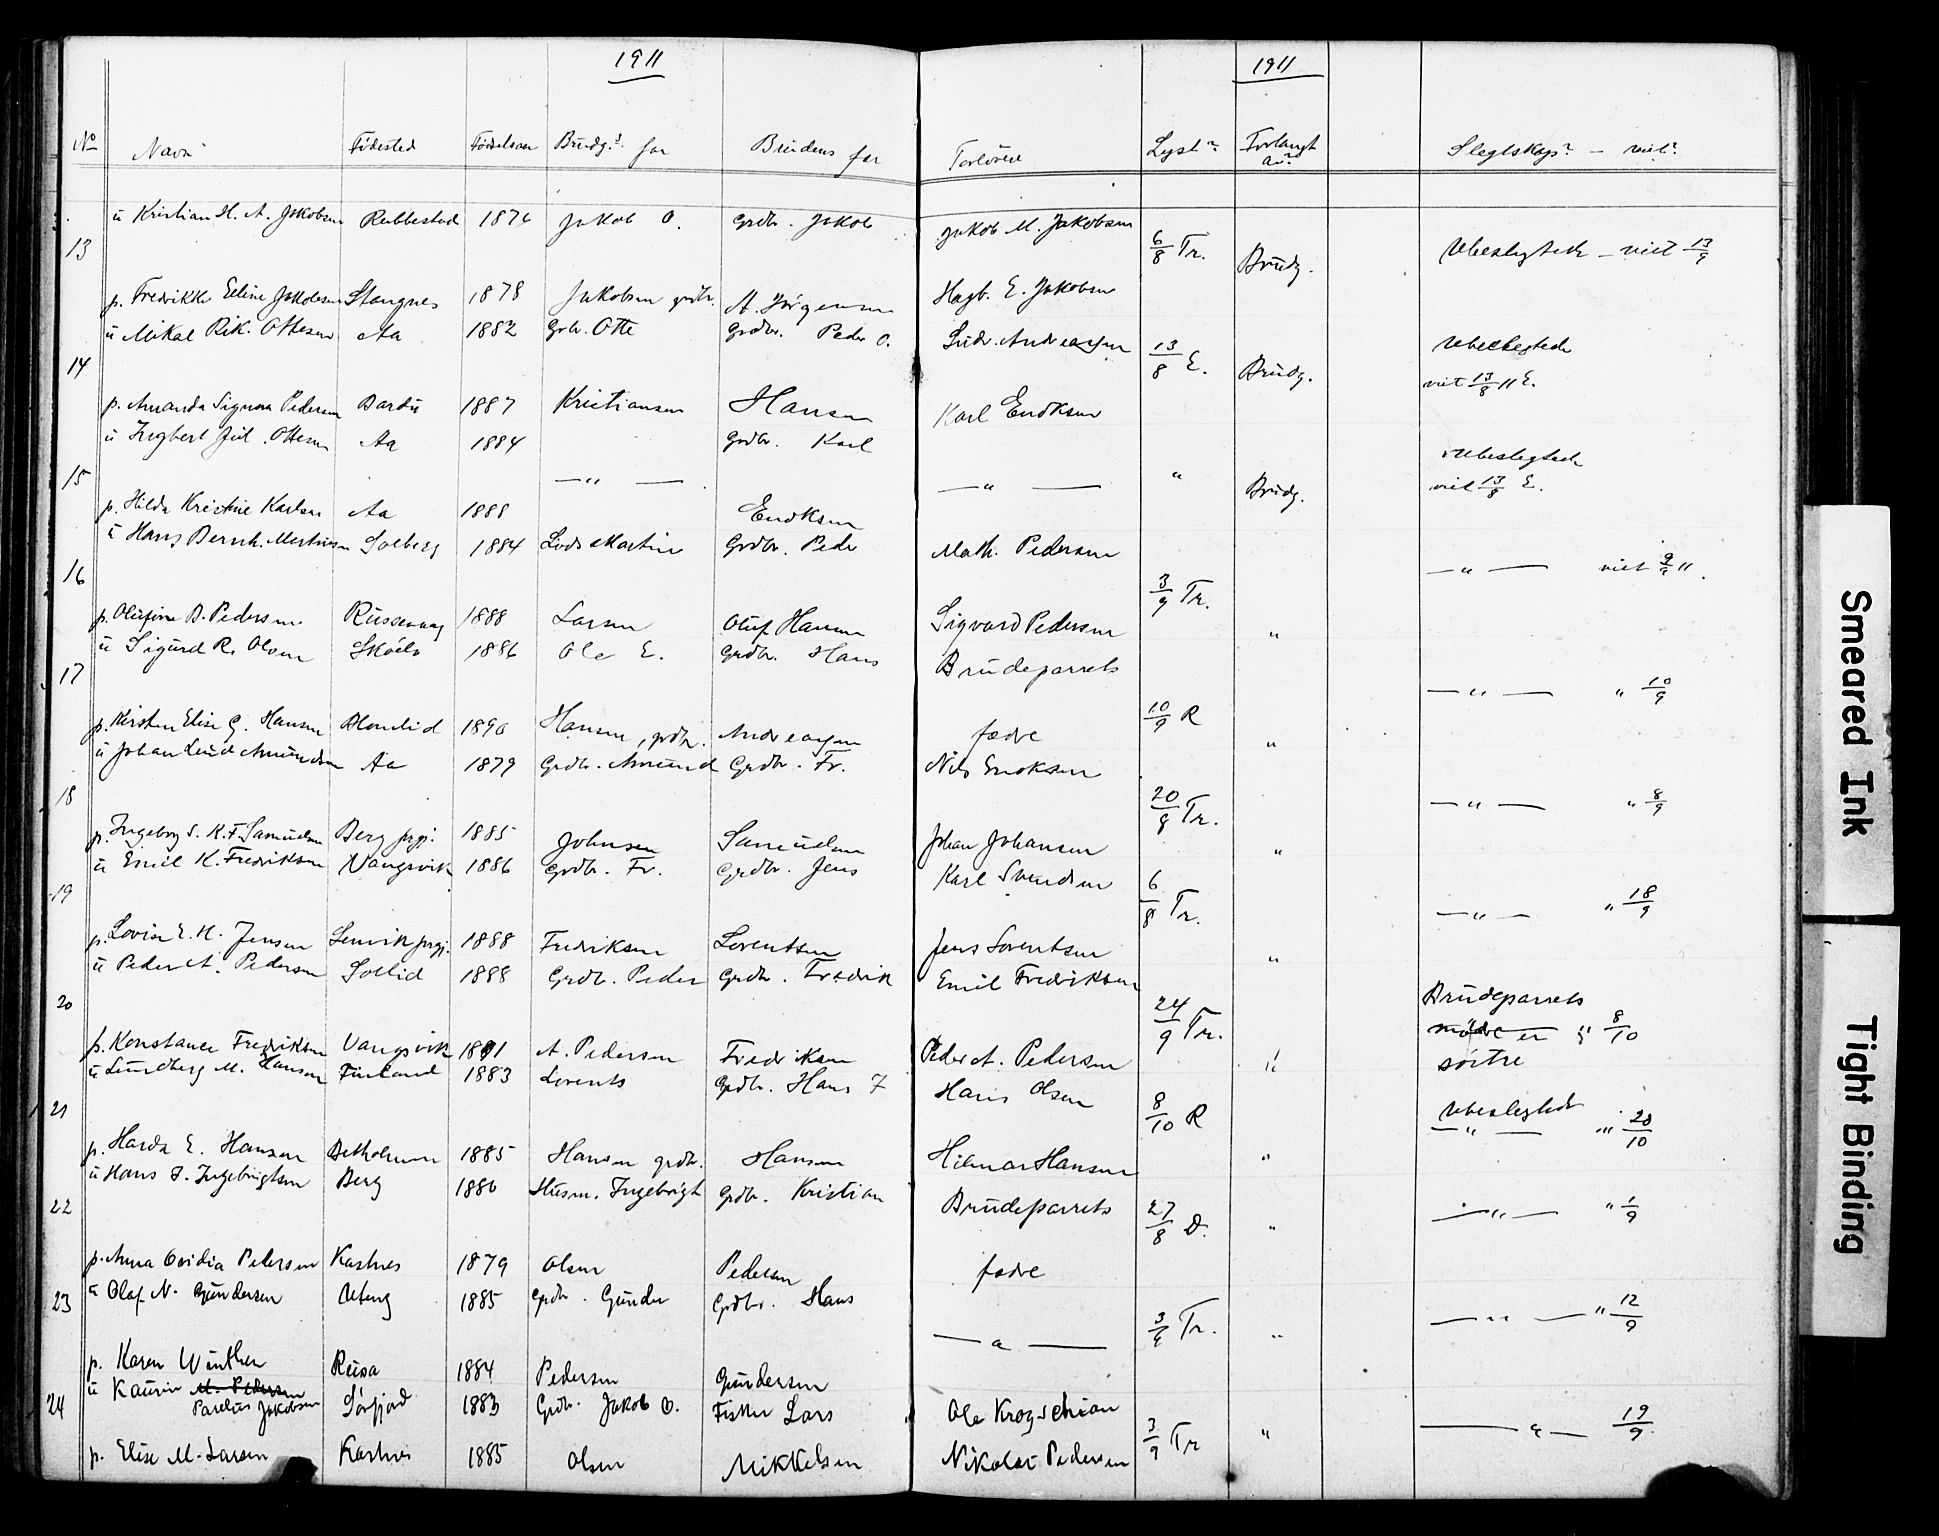 1911
1911
No Navn Fødested Fødselsaar Brudg.s far Brudens far Forlovere Lyst Forlangt av Slegtskap – viet
u Kristian H. A. Jakobsen Rubbestad 1876 Jakob O. Grdbr. Jakob Jakob M. Jakobsen
13 6/8 Tr. Brudg. Ubeslegtede – viet 13/9
p. Fredrikke Eline Jakobsen Stangnes 1878 Jakobsen grdbr. A. Jørgensen Hagb. E. Jakobsen
u Mikal Rik. Ottesen Aa 1882 Grbr. Otte Grdbr. Peder O. Ludv. Andreassen
14 13/8 E. Brudg. Ubeslegtede viet 13/8 11 E.
p. Amanda Signora Pedersen Bardu 1887 Kristiansen Hansen Karl Enoksen
u Ingbert Jul. Ottesen Aa 1884 Grdbr. Karl
15 — " — — " — " Brudg. Ubeslegtede viet 13/8 E.
p. Hilda Kristine Karlsen Aa 1888 Enoksen
u Hans Bernh. Martinsen Solberg 1884 Lods Martin Grdbr. Peder Math. Pedersen
16 3/9 Tr. " — " — viet 3/9 11.
p. Olufine B. Pedersen Russevaag 1888 Larsen Oluf Hansen Sigvard Pedersen
u Sigurd R. Olsen Skøelv 1886 Ole E. Grdbr. Hans Brudeparrets
17 10/9 R " — " — " 10/9
p. Kirsten Elise G. Hansen Blomlid 1890 Hansen, grdbr. Andreassen fædre
u Johan Leud Amundsen Aa 1879 Grdbr. Amund Grdbr. Fr. Nils Enoksen
18 20/8 Tr. " — " — " 8/9
p. Ingeborg S. K. F. Samuelsen Berg prgj. 1885 Johnsen Samuelsen Johan Johansen
u Emil K. Fredriksen Vangsvik 1886 Grdbr. Fr. Grdbr. Jens Karl Svendsen
19 6/8 Tr. " — " — " 18/9
p. Lovise E. H. Jensen Lenvik prgj. 1888 Fredriksen Lorentsen Jens Lorentsen
u Peder A. Pedersen Sollid 1888 Grdb. Peder Grdb. Fredrik Emil Fredriksen
20 24/9 Tr. " Brudeparrets mødre er søstre 8/10
p. Konstance Fredriksen Vangsvik 1891 A. Pedersen Fredriksen Peder A. Pedersen
u Lundberg M. Hansen Finland 1883 Lorents Grdb. Hans J Hans Olsen
21 8/10 R " Ubeslegtede — " — " 28/10
p. Harda E. Hansen Botholmen 1885 Hansen grdbr. Hansen Hilmar Hansen
u Hans J. Ingebrigtsen Berg 1886 Husm. Ingebrigt grdb. Kristian Brudeparrets
22 27/8 D. " — " — " 1/9
p. Anna Ovidia Pedersen Kastnes 1879 Olsen Pedersen fædre
u Olaf N. Gundersen 1885 Grdbr. Gunder Grdbr. Hans
23 — " — 3/9 Tr. " — " — " 12/9
p. Karen Winther Reisa 1884 Pedersen Gundersen
u Kaurin M. Pedersen Parelius Jakobsen Sørfjord 1883 Grdb. Jakob O. Fisker Lars Ole Krogseth
24 3/9 Tr " — " — 19/9.
p. Elise M. Larsen Kastnes 1885 Olsen Mikkelsen Nikolai Pedersen
Smeared Ink
Tight Binding